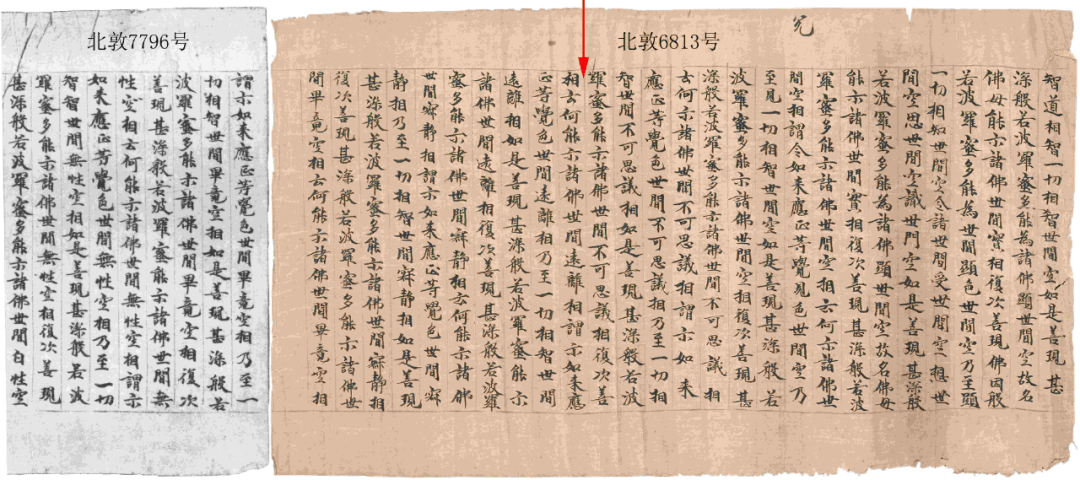 北敦6813号
北敦7796号
智道相智一切相智世間空如是善現甚
深般若波羅蜜多能為諸佛顯世間空故名
佛母能示諸佛世間實相復次善現佛因般
若波羅蜜多能為世間顯色世間空乃至顯
一切相知世間空令諸世間受世間空想世
間空思世間空識世門空如是善現甚深般
若波羅蜜多能為諸佛顯世間空故名佛母
能示諸佛世間實相復次善現甚深般若波
羅蜜多能示諸佛世間空相云何示諸佛世
間空相謂令如來應正等覺見色世間空乃
至見一切相智世間空如是善現甚深般若
波羅蜜多能示諸佛世間空相復次善現甚
深般若波羅蜜多能示諸佛世間不可思議相
云何示諸佛世間不可思議相謂示如來
應正等覺色世間不可思議相乃至一切相
智世間不可思議相如是善現甚深般若波
羅蜜多能示諸佛世間不可思議相復次善
相云何能示諸佛世間遠離相謂示如來應
正等覺色世間遠離相乃至一切相智世間
遠離相如是善現甚深般若波羅蜜多能示
諸佛世間遠離相復次善現甚深般若波羅
蜜多能示諸佛世間寂静相云何能示諸佛
世間寂静相謂示如來應正等覺色世間寂
静相乃至一切相智世間寂静相如是善現
甚深般若波羅蜜多能示諸佛世間寂静相
復次善現甚深般若波羅蜜多能示諸佛世
間畢竟空相云何能示諸佛世間畢竟空相
謂示如來應正等覺色世間畢竟空相乃至一
切相智世間畢竟空相如是善現甚深般若
波羅蜜多能示諸佛世間畢竟空相復次
善現甚深般若波羅蜜能示諸佛世間無
性空相云何能示諸佛世間無性空相謂示
如來應正等覺色世間無性空相乃至一切
智智世間無性空相如是善現甚深般若波
羅蜜多能示諸佛世間無性空相復次善現
甚深般若波羅蜜多能示諸佛世間自性空